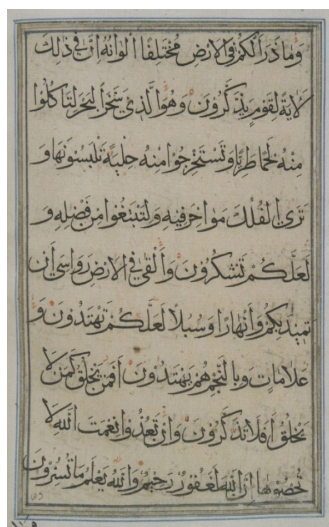 وما ذرأ لكم في الارض مختلفا الوانه ان في ذلك
لاية لقوم يذكرون وهو الذي سخر البحر لتاكلوا
منه لحما طريا وتستخرجوا منه حلية تلبسونها و
ترى الفلك مواخر فيه ولتبتغوا من فضله و
لعلكم تشكرون والقى في الارض رواسي ان
تميد بكم وانهارا وسبلا لعلكم تهتدون و
علامات وبالنجم هم يهتدون افمن يخلق كمن لا
يخلق افلا تذكرون وان تعدوا نعمت الله لا
تحصوها ان الله لغفور رحيم والله يعلم ما تسرون